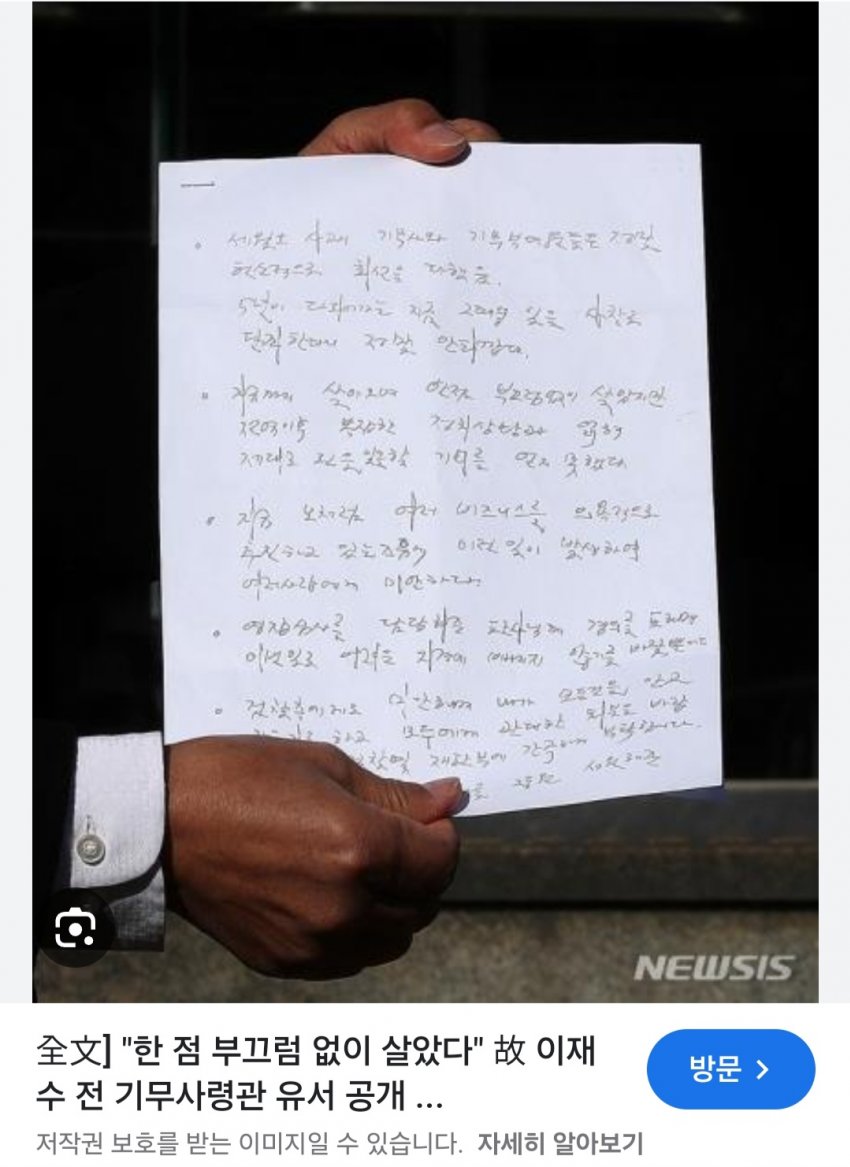 세월호 사고시 기무사와 기무부대원들은 정말
헌신적으로 최선을 다했음.
5년이 다 되가는 지금 그때의 일을 사찰로
단죄한다니 정말 안타깝다.
지금까지 살아오며 한점 부끄럼없이 살았지만
전역이후 복잡한 정치상황과 얽혀
제대로 된 일을 할 기회를 얻지 못했다
지금 모처럼 여러 비즈니스를 의욕적으로
추진하고 있는데 이런 일이 발생하여
여러사람에게 미안하다.
영장심사를 담당해준 판사님께 경의를 표하며
이번 일로 어려운 지경에 빠지지 않기를 바랄뿐
검찰측에게도 미안하며 내가 모든것을 안고
하고 모두에게 관대한 처분을 바랍
재판부에 간곡하게 부탁합니다.
NEWSIS
全文] "한 점 부끄럼 없이 살았다" 故 이재
수 전 기무사령관 유서 공개 ...
방문
저작권 보호를 받는 이미지일 수 있습니다. 자세히 알아보기